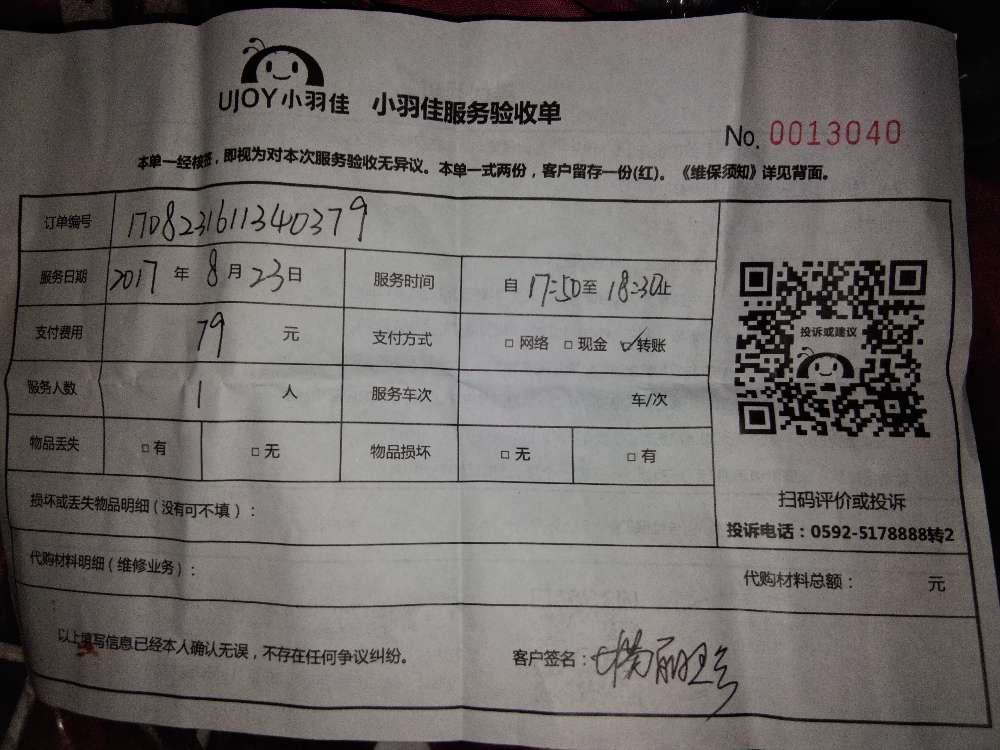 UJOY小羽佳 小羽佳服务验收单
No. 0013040
本单一经核签，即视为对本次服务验收无异议。本单一式两份，客户留存一份(红)。《维保须知》详见背面。
订单编号 1708231611340379
服务日期 2017年8月23日 服务时间 自17:50至18:30止
支付费用 79元 支付方式 □网络 □现金 ☑转账
服务人数 1人 服务车次 车/次
物品丢失 □有 □无 物品损坏 □无 □有
投诉或建议
扫码评价或投诉
投诉电话：0592-5178888转2
损坏或丢失物品明细（没有可不填）：
代购材料明细（维修业务）： 代购材料总额： 元
以上填写信息已经本人确认无误，不存在任何争议纠纷。 客户签名：杨丽